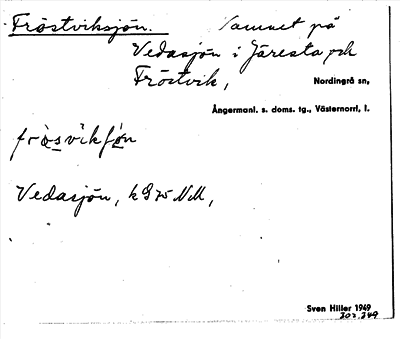 Fröstviksjön. Namnet på
Vedasjön i Järesta och
Fröstvik,
Nordingrå sn,
Ångermanl. s. doms. tg., Västernorrl. l.
Vedasjön, k
Sven Hiller 1949